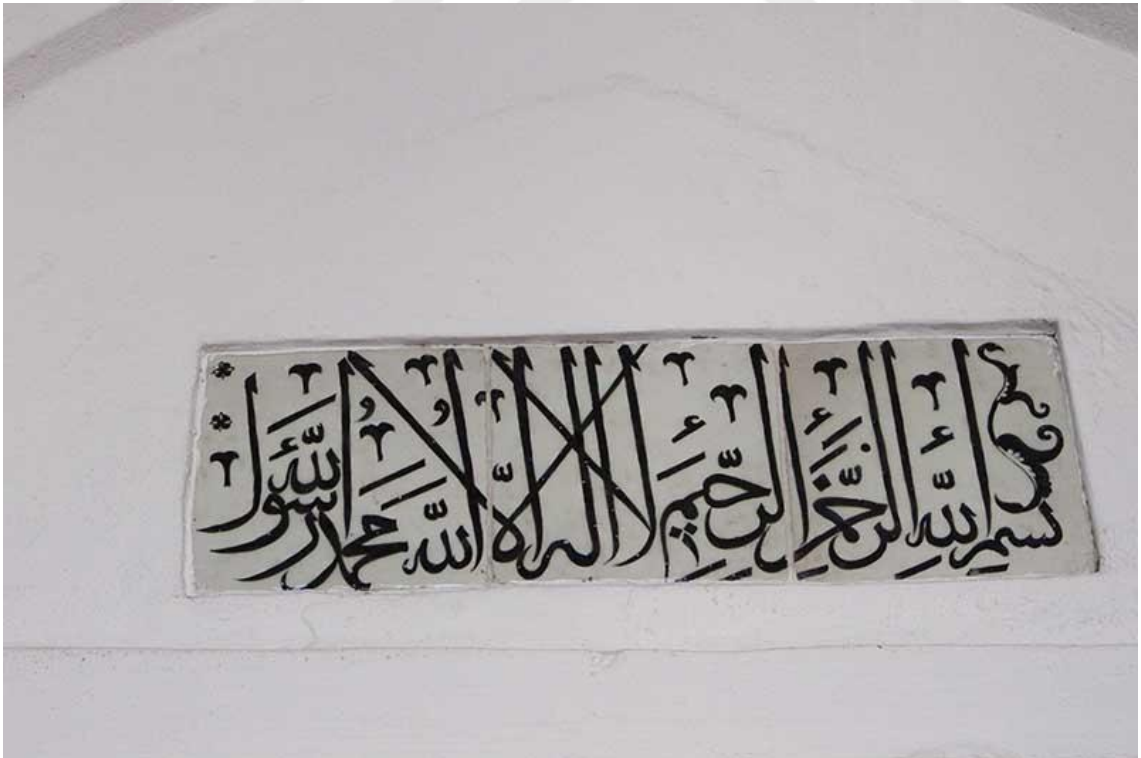 بسم الله الرحمن الرحيم لا اله الا الله محمد رسول الله